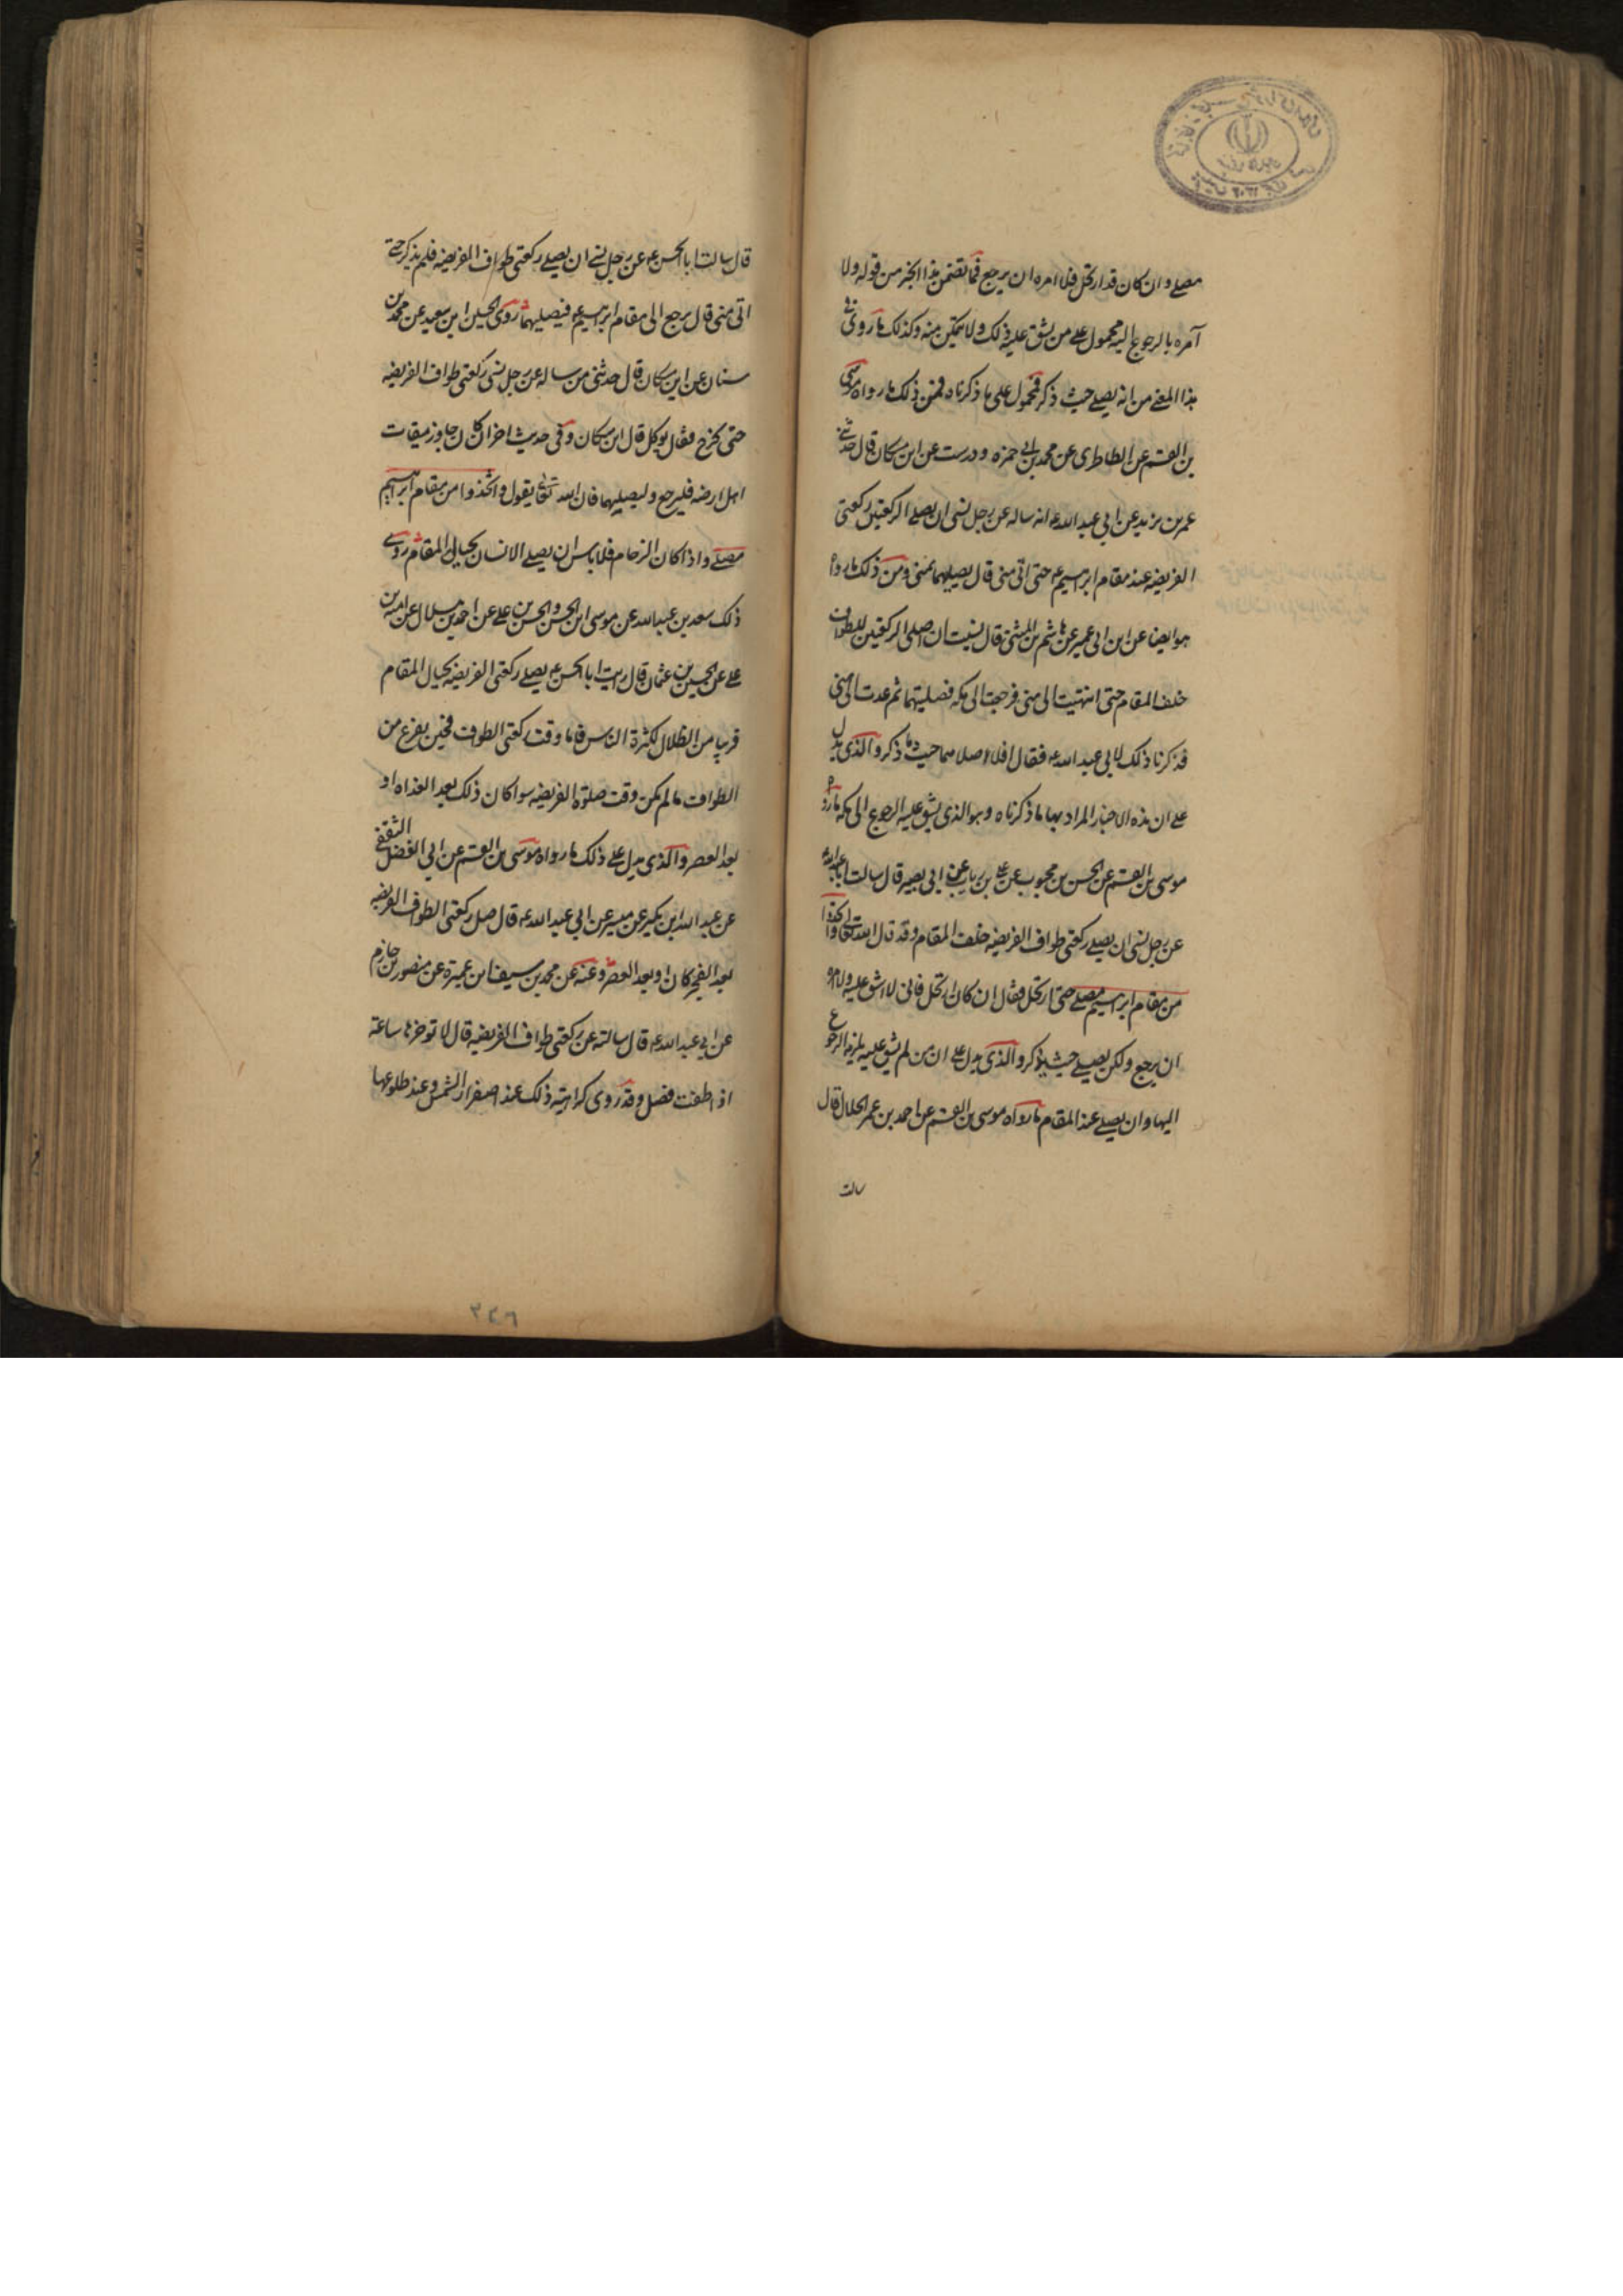 مصلے وان كان قد ارتحل فلا امره ان يرجع فما تضمن هذا الخبر من قوله ولا
آمره بالرجوع اليه محمول علے من يشق عليه ذلك ولا يتمكن منه وكذلك ما روي في
هذا المعنے من انه يصلے حيث ذكر فمحمول على ما ذكرناه فمن ذلك ما رواه موسى
بن القسم عن الطاطرى عن محمد بن ابي حمزه ودرست عن ابن مسكان قال حدثنے
عمر بن يزيد عن ابي عبد الله ع انه ساله عن رجل نسى ان يصلے الركعتين ركعتى
الفريضه عند مقام ابرهيم ع حتى اتى منى قال يصليهما بمنى ومن ذلك ما رواه
هو ايضا عن ابن ابى عمير عن هاشم بن المثنى قال نسيت ان اصلى الركعتين للطواف
خلف المقام حتى انتهيت الى منى فرجعت الى مكه فصليتهما ثم عدت الى منى
فذكرنا ذلك لابى عبد الله ع فقال افلا صلاهما حيث ما ذكر والذى يدل
علے ان هذه الاخبار المراد بها ما ذكرناه وهو الذى يشق عليه الرجوع الى مكه ما رواه
موسى بن القسم عن الحسن بن محبوب عن علے بن رياب عن ابى بصير قال سالت ابا عبد الله
عن رجل نسى ان يصلے ركعتى طواف الفريضه خلف المقام وقد قال الله تعالى واتخذوا
من مقام ابرهيم مصلے حتى ارتحل فقال ان كان ارتحل فانى لا اشق عليه ولا امره
ان يرجع ولكن يصلے حيث يذكر والذى يدل علے ان من لم يشق عليه يلزمه الرجوع
اليها وان يصلے عند المقام ما رواه موسى بن القسم عن احمد بن عمر الحلال قال
سالت
قال سالت ابا الحسن ع عن رجل نسے ان يصلے ركعتى طواف الفريضه فلم يذكر حتے
اتى منى قال يرجع الى مقام ابرهيم ع فيصليهما روى الحسين ابن سعيد عن محمد بن
سنان عن ابن مسكان قال حدثنى من ساله عن رجل نسى ركعتى طواف الفريضه
حتى يخرج فقال يوكل قال ابن مسكان وفى حديث اخر ان كان جاوز ميقات
اهل ارضه فليرجع وليصليهما فان الله تعالى يقول واتخذوا من مقام ابرهيم
مصلے واذا كان الزحام فلا باس ان يصلے الانسان بحيال المقام روى
ذلك سعد بن عبد الله عن موسى ابن الحسن والحسن بن علے عن احمد بن هلال عن امية بن
علے عن الحسين بن عثمان قال رايت ابا الحسن ع يصلے ركعتى الفريضه بحيال المقام
قريبا من الظلال لكثرة الناس فاما وقت ركعتى الطواف فحين يفرغ من
الطواف ما لم يكن وقت صلوة الفريضه سوا كان ذلك بعد الغداه او
بعد العصر والذى يدل علے ذلك ما رواه موسى بن القسم عن ابى الفضل الثقفے
عن عبد الله ابن بكير عن ميسر عن ابي عبد الله ع قال صل ركعتى الطواف الفريضه
بعد الفجر كان او بعد العصر وعنه عن محمد بن سيف ابن عميرة عن منصور بن حازم
عن ابي عبد الله ع قال سالته عن ركعتى طواف الفريضه قال لا توخرها ساعة
اذا طفت فصل وقد روى كراهية ذلك عند اصفرار الشمس وعند طلوعها
۲۴۶